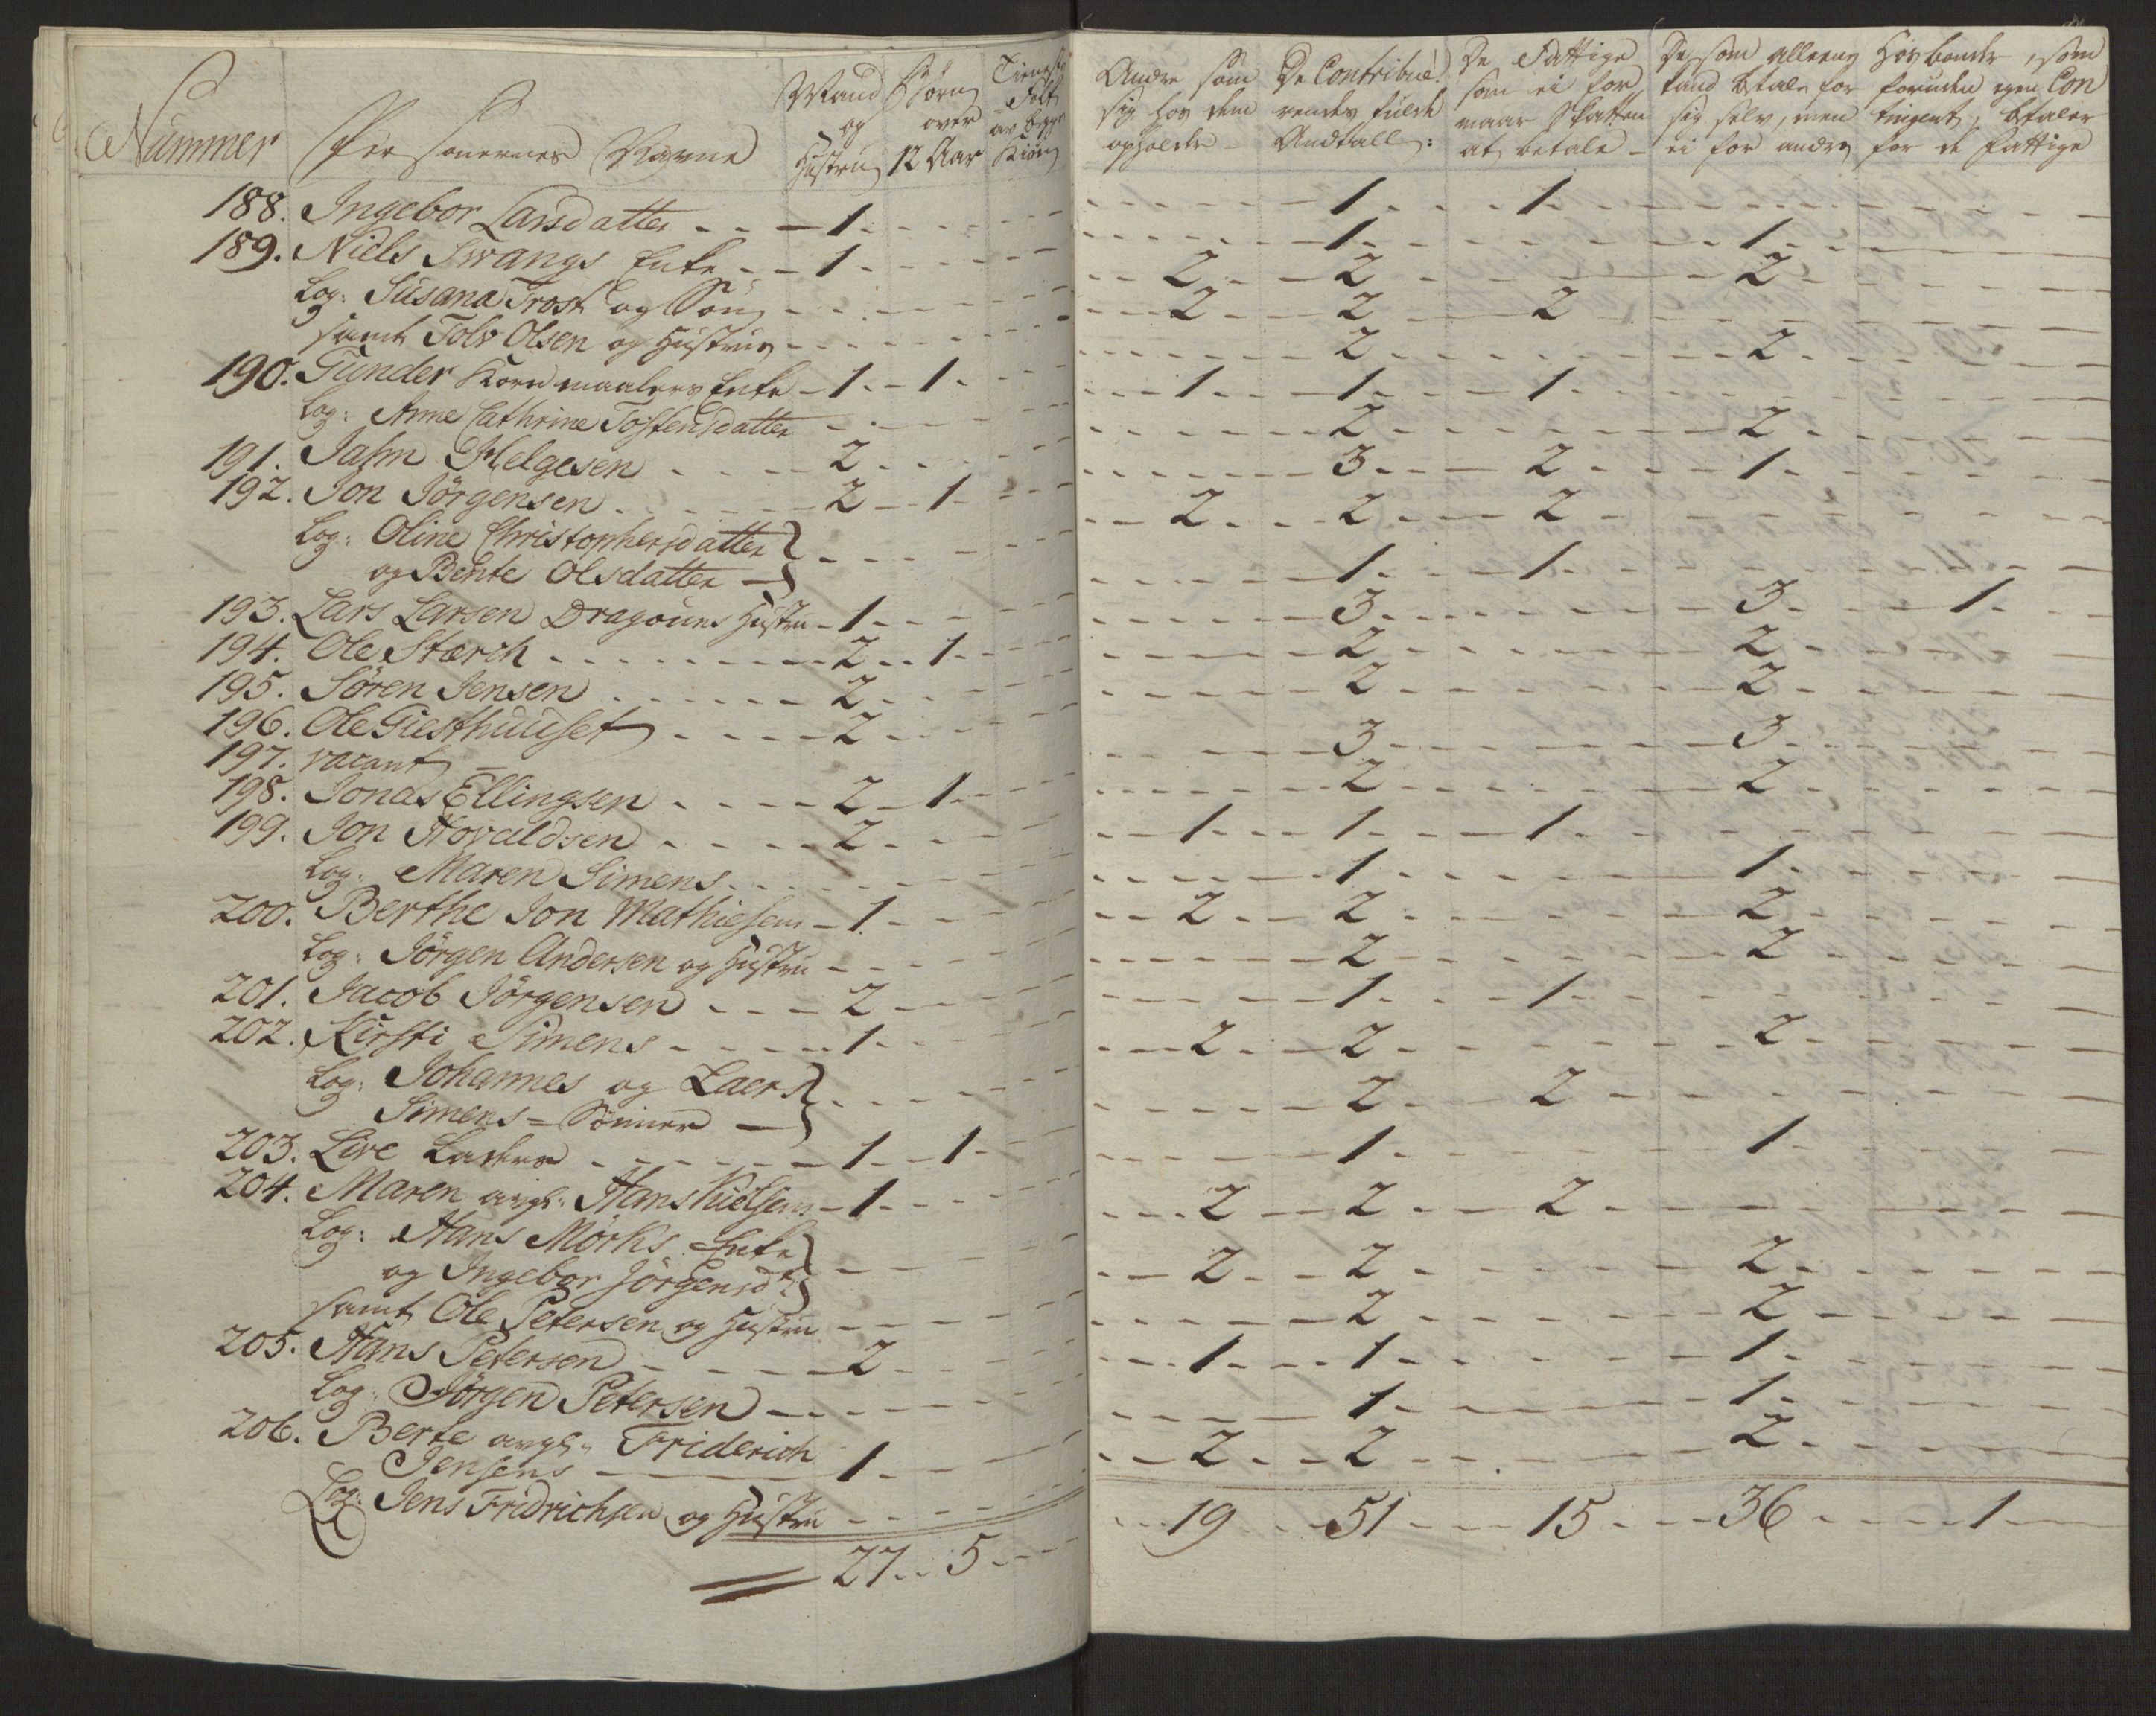 Nummer
Personernes Navne
Mand og Hustru
Børn over 12 Aar
Tieneste Folk av begge Kiøn
Andre som sig hos dem opholder
De Contribuerendes fulde Andtall:
De Fattige som ei formaar Skatten at betale
De som alleene kand betale for sig selv, men ei for andre
Hosbonde, som foruden egen Contingent, betaler for de Fattige
188. Ingebor Larsdatter 1 1 1
189. Niels Svangs Enke 1 1 1
Log: Susana Trost og Søn 2 2 2
samt Tolv Olsen og Hustrue 2 2 2
190. Gunder Kornmaalers Enke 1 1 2 2
Log: Anne Cathrine Tostensdatter 1 1 1
191. Jahn Helgesen 2 2 2
192. Jon Jörgensen 2 1 3 2 1
Log: Oline Christophersdatter
og Bente Olsdatter 2 2 2
193. Lars Larsen Dragouns Hustru 1 1 1
194. Ole Stærch 2 1 3 3 1
195. Sören Jensen 2 2 2
196. Ole Giesthuuset 2 2 2
197. vacant
198. Jonas Ellingsen 2 1 3 3
199. Jon Hovaldsen 2 2 2
Log: Maren Simens 1 1 1
200. Berthe Jon Mathiesens 1 1 1
Log: Jörgen Andersen og Hustru 2 2 2
201. Jacob Jörgensen 2 2 2
202. Kirsti Simens 1 1 1
Log: Johannes og Laers
Simens = Sönner 2 2 2
203. Live 1 1 2 2
204. Maren avgl: Hans Nielsens 1 1 1
Log: Hans Mörks Enke
og Ingebor Jörgensdr 2 2 2
samt Ole Petersen og Hustru 2 2 2
205. Hans Petersen 2 2 2
Log: Jörgen Petersen 1 1 1
206. Berte avgl: Friderich
Jensens 1 1 1
Log: Jens Fridrichsen og Hustru 2 2 2
27 5 19 51 15 36 1